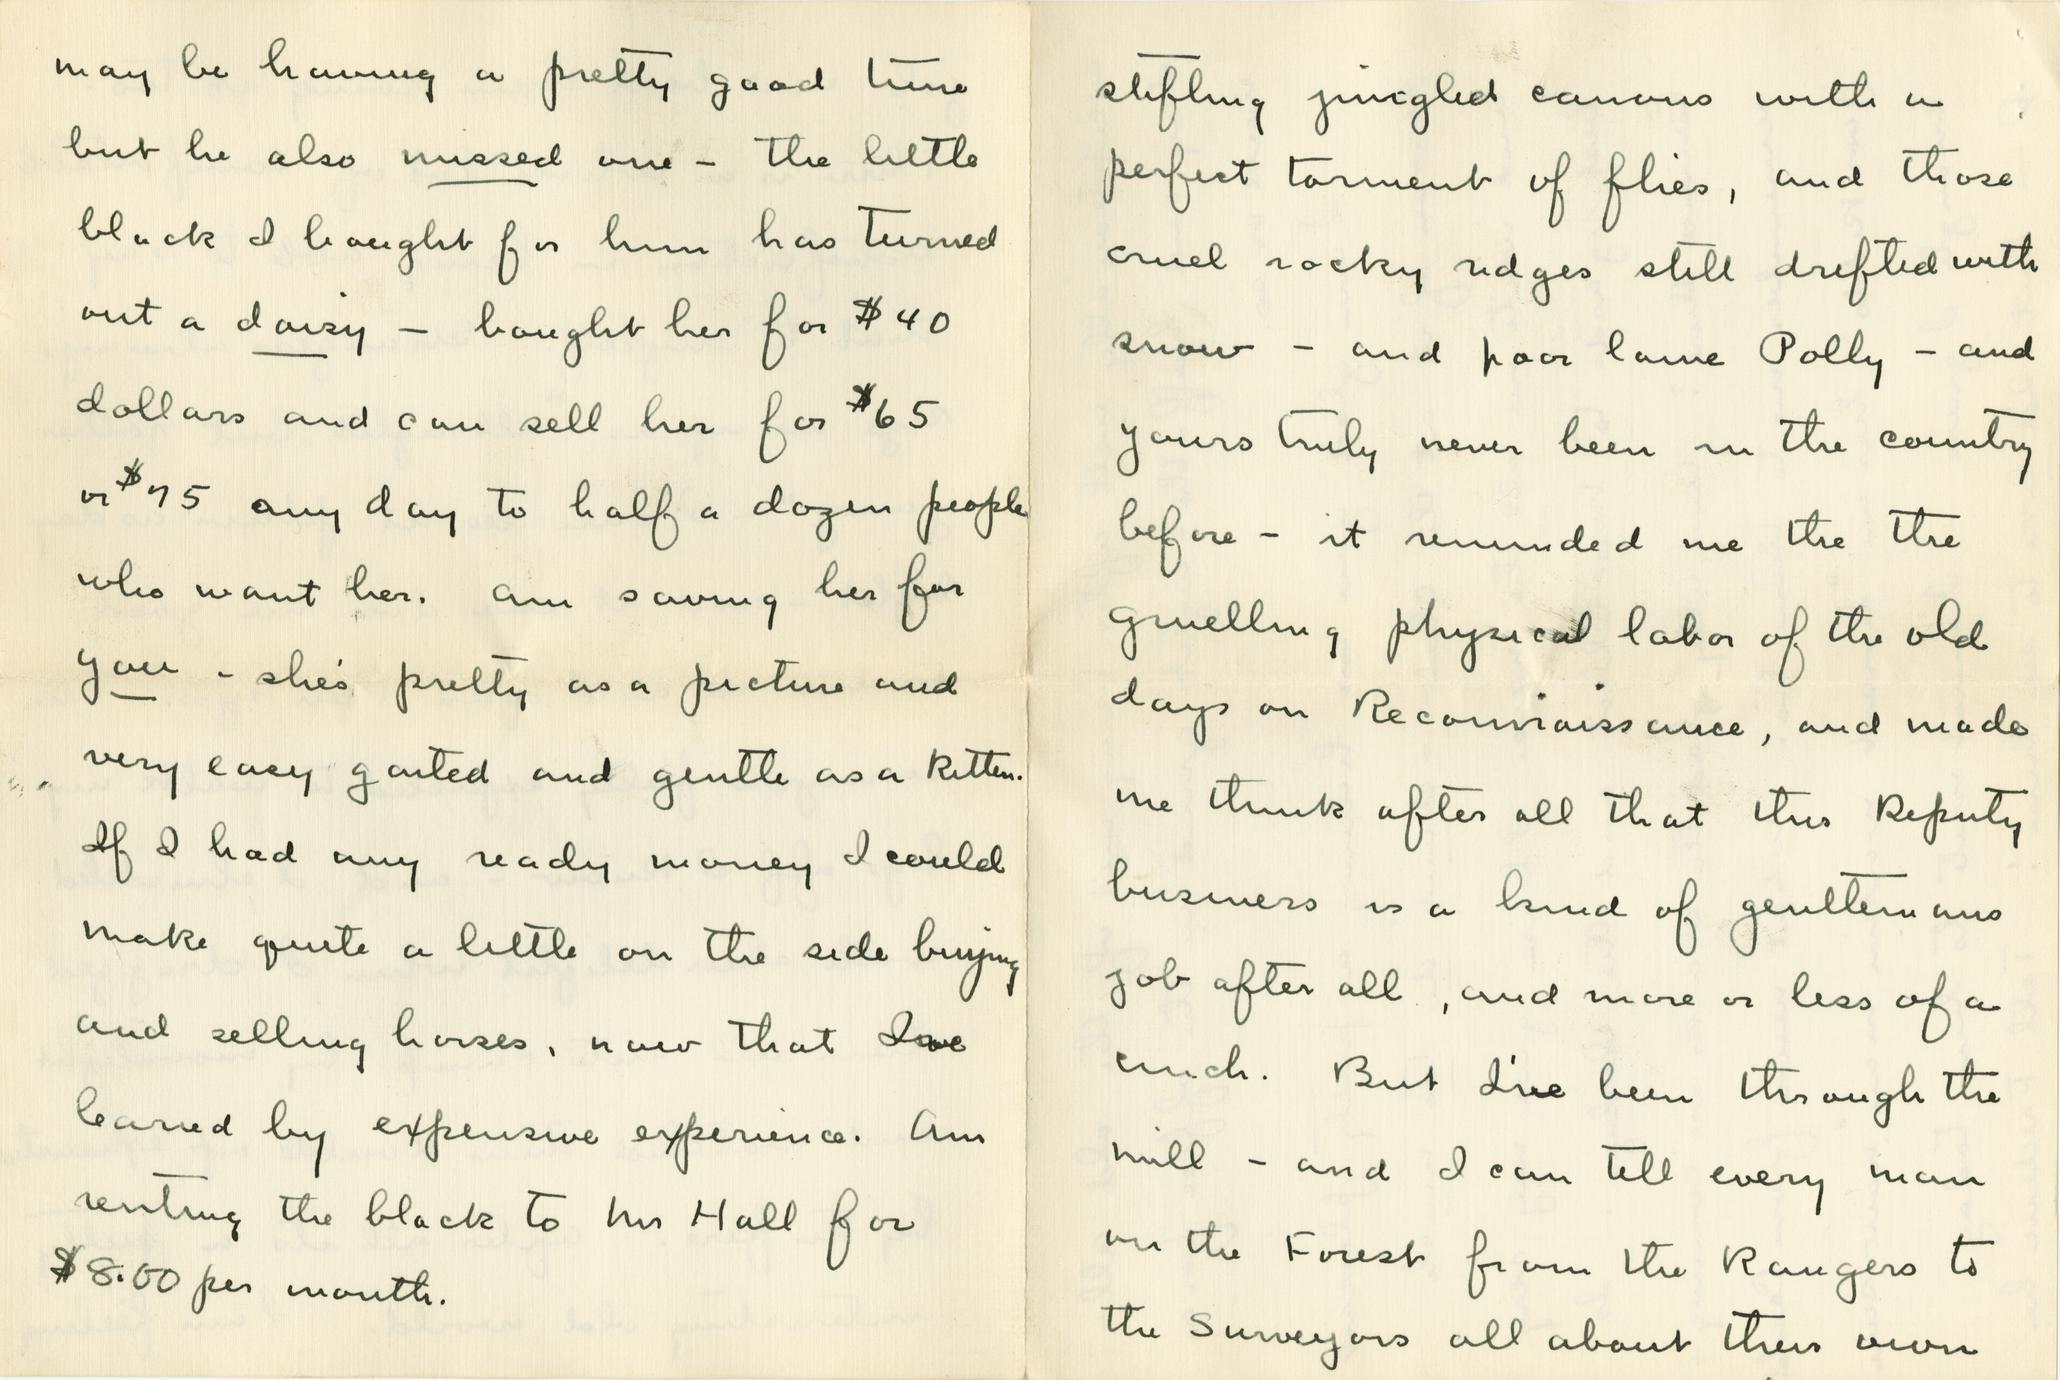 may be having a pretty good time
but he also missed one – the little
black I bought for him has turned
out a daisy – bought her for $40
dollars and can sell her for $65
or $75 any day to half a dozen people
who want her. Am saving her for
you – she's pretty as a picture and
very easy gaited and gentle as a kitten.
If I had any ready money I could
make quite a little on the side buying
and selling horses, now that I've
learned by expensive experience. Am
renting the black to Mr Hall for
$8.00 per month.
stifling jungled canons with a
perfect torment of flies, and those
cruel rocky ridges still drifted with
snow – and poor lame Polly – and
yours truly never been in the country
before – it reminded me the the
gruelling physical labor of the old
days on Reconnaissance, and made
me think after all that this Deputy
business is a kind of gentlemans
job after all, and more or less of a
cinch. But I've been through the
mill – and I can tell every man
on the Forest from the Rangers to
the Surveyors all about their own